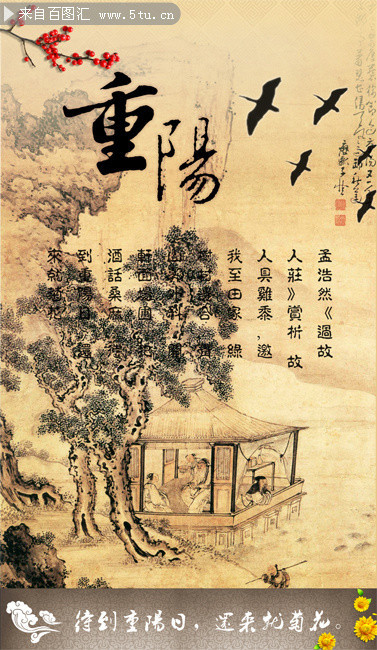 来自百图汇
www.5tu.cn
重陽
孟浩然《過故
人莊》賞析 故
人具雞黍,邀
我至田家 綠
樹村邊合 青
山郭外斜 開
軒面場圃 把
酒話桑麻 待
到重陽日 還
來就菊花
待到重陽日，還来就菊花。